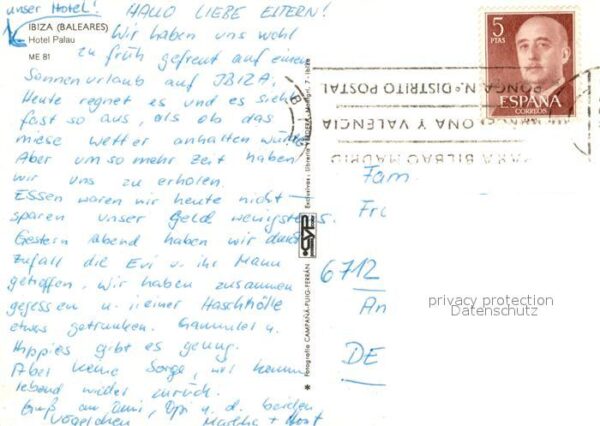 unser Hotel! HALLO LIEBE ELTERN!
IBIZA (BALEARES)
Hotel Palau
ME 81
Wir haben uns wohl
zu früh gefreut auf einen
Sonnenurlaub auf IBIZA.
Heute regnet es und es sieht
fast so aus, als ob das
miese wetter anhalten würde
Aber um so mehr Zeit haben
wir uns zu erholen.
Essen waren wir heute nicht –
sparen unser Geld wenigstens.
Gestern Abend haben wir durch
Zufall die Evi u. ihr Mann
getroffen, wir haben zusammen
gegessen u. in einer Haschhölle
etwas getrunken. Gammler u.
Hippies gibt es genug.
Aber keine Sorge, wir kommen
lebend wieder zurück.
Gruß an Omi, Opi u. d. beiden
Vögelchen Martha + Horst
* Fotografía CAMPAÑÁ-PUIG-FERRÁN
Exclusivas: Librería
5
PTAS
ESPAÑA
CORREOS
PONGA N.º DISTRITO POSTAL
PARA BILBAO MADRID
BARCELONA Y VALENCIA
Fam
Fri
6712
An
DE
privacy protection
Datenschutz